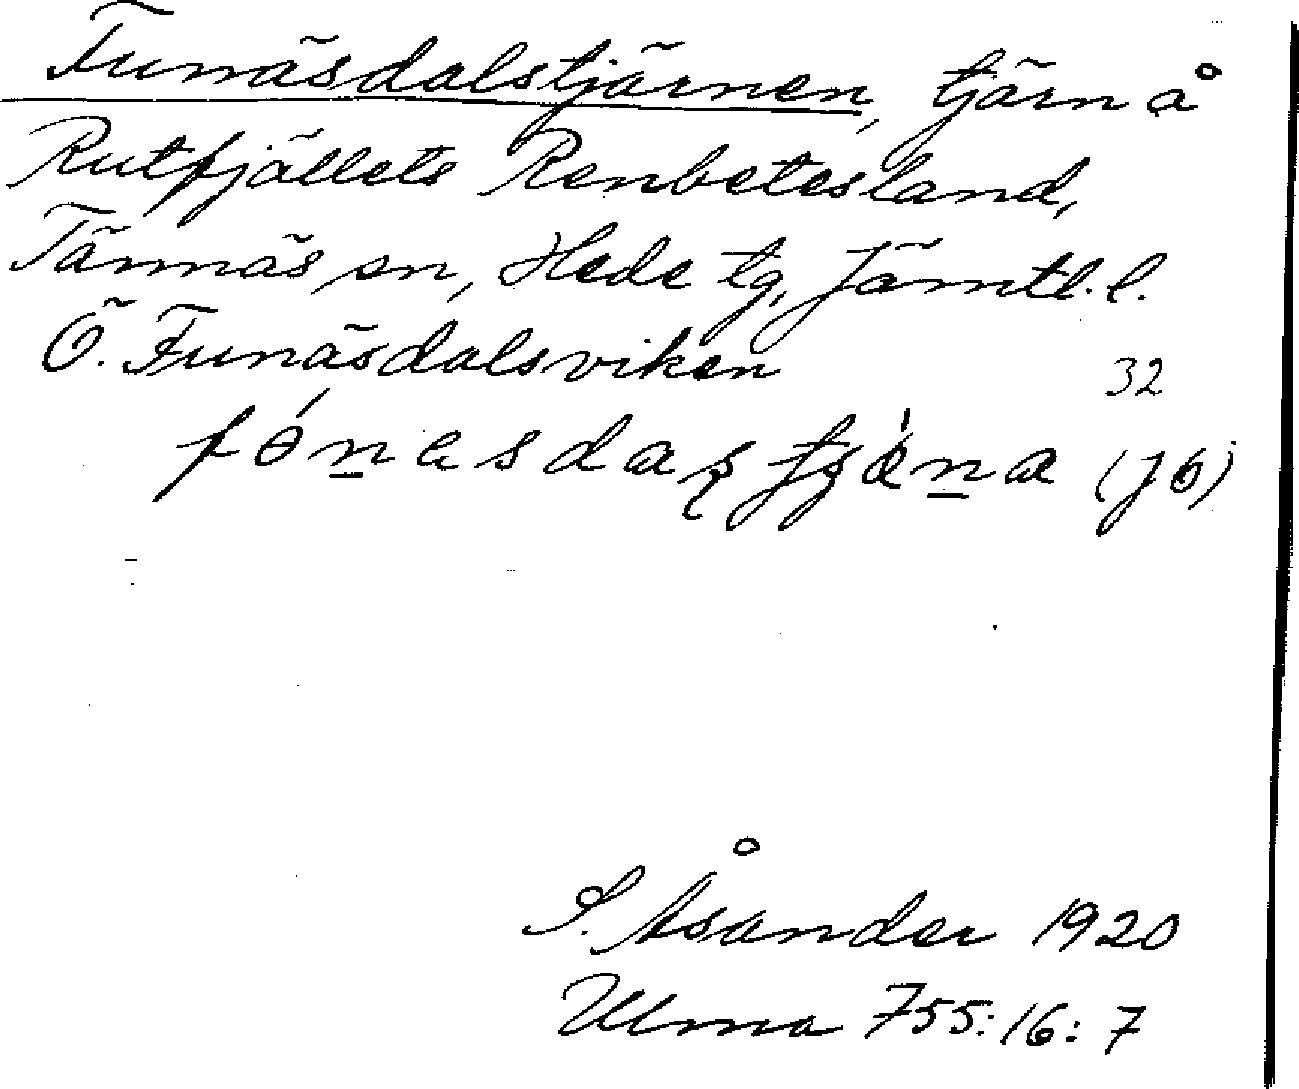 Funäsdalstjärnen, tjärn å
Rutfjällets Renbetesland,
Tännäs sn, Hede tg, Jämtl. l.
Ö. Funäsdalsviken
32
(Jö)
S. Åsander 1920
Ulma 755:16:7